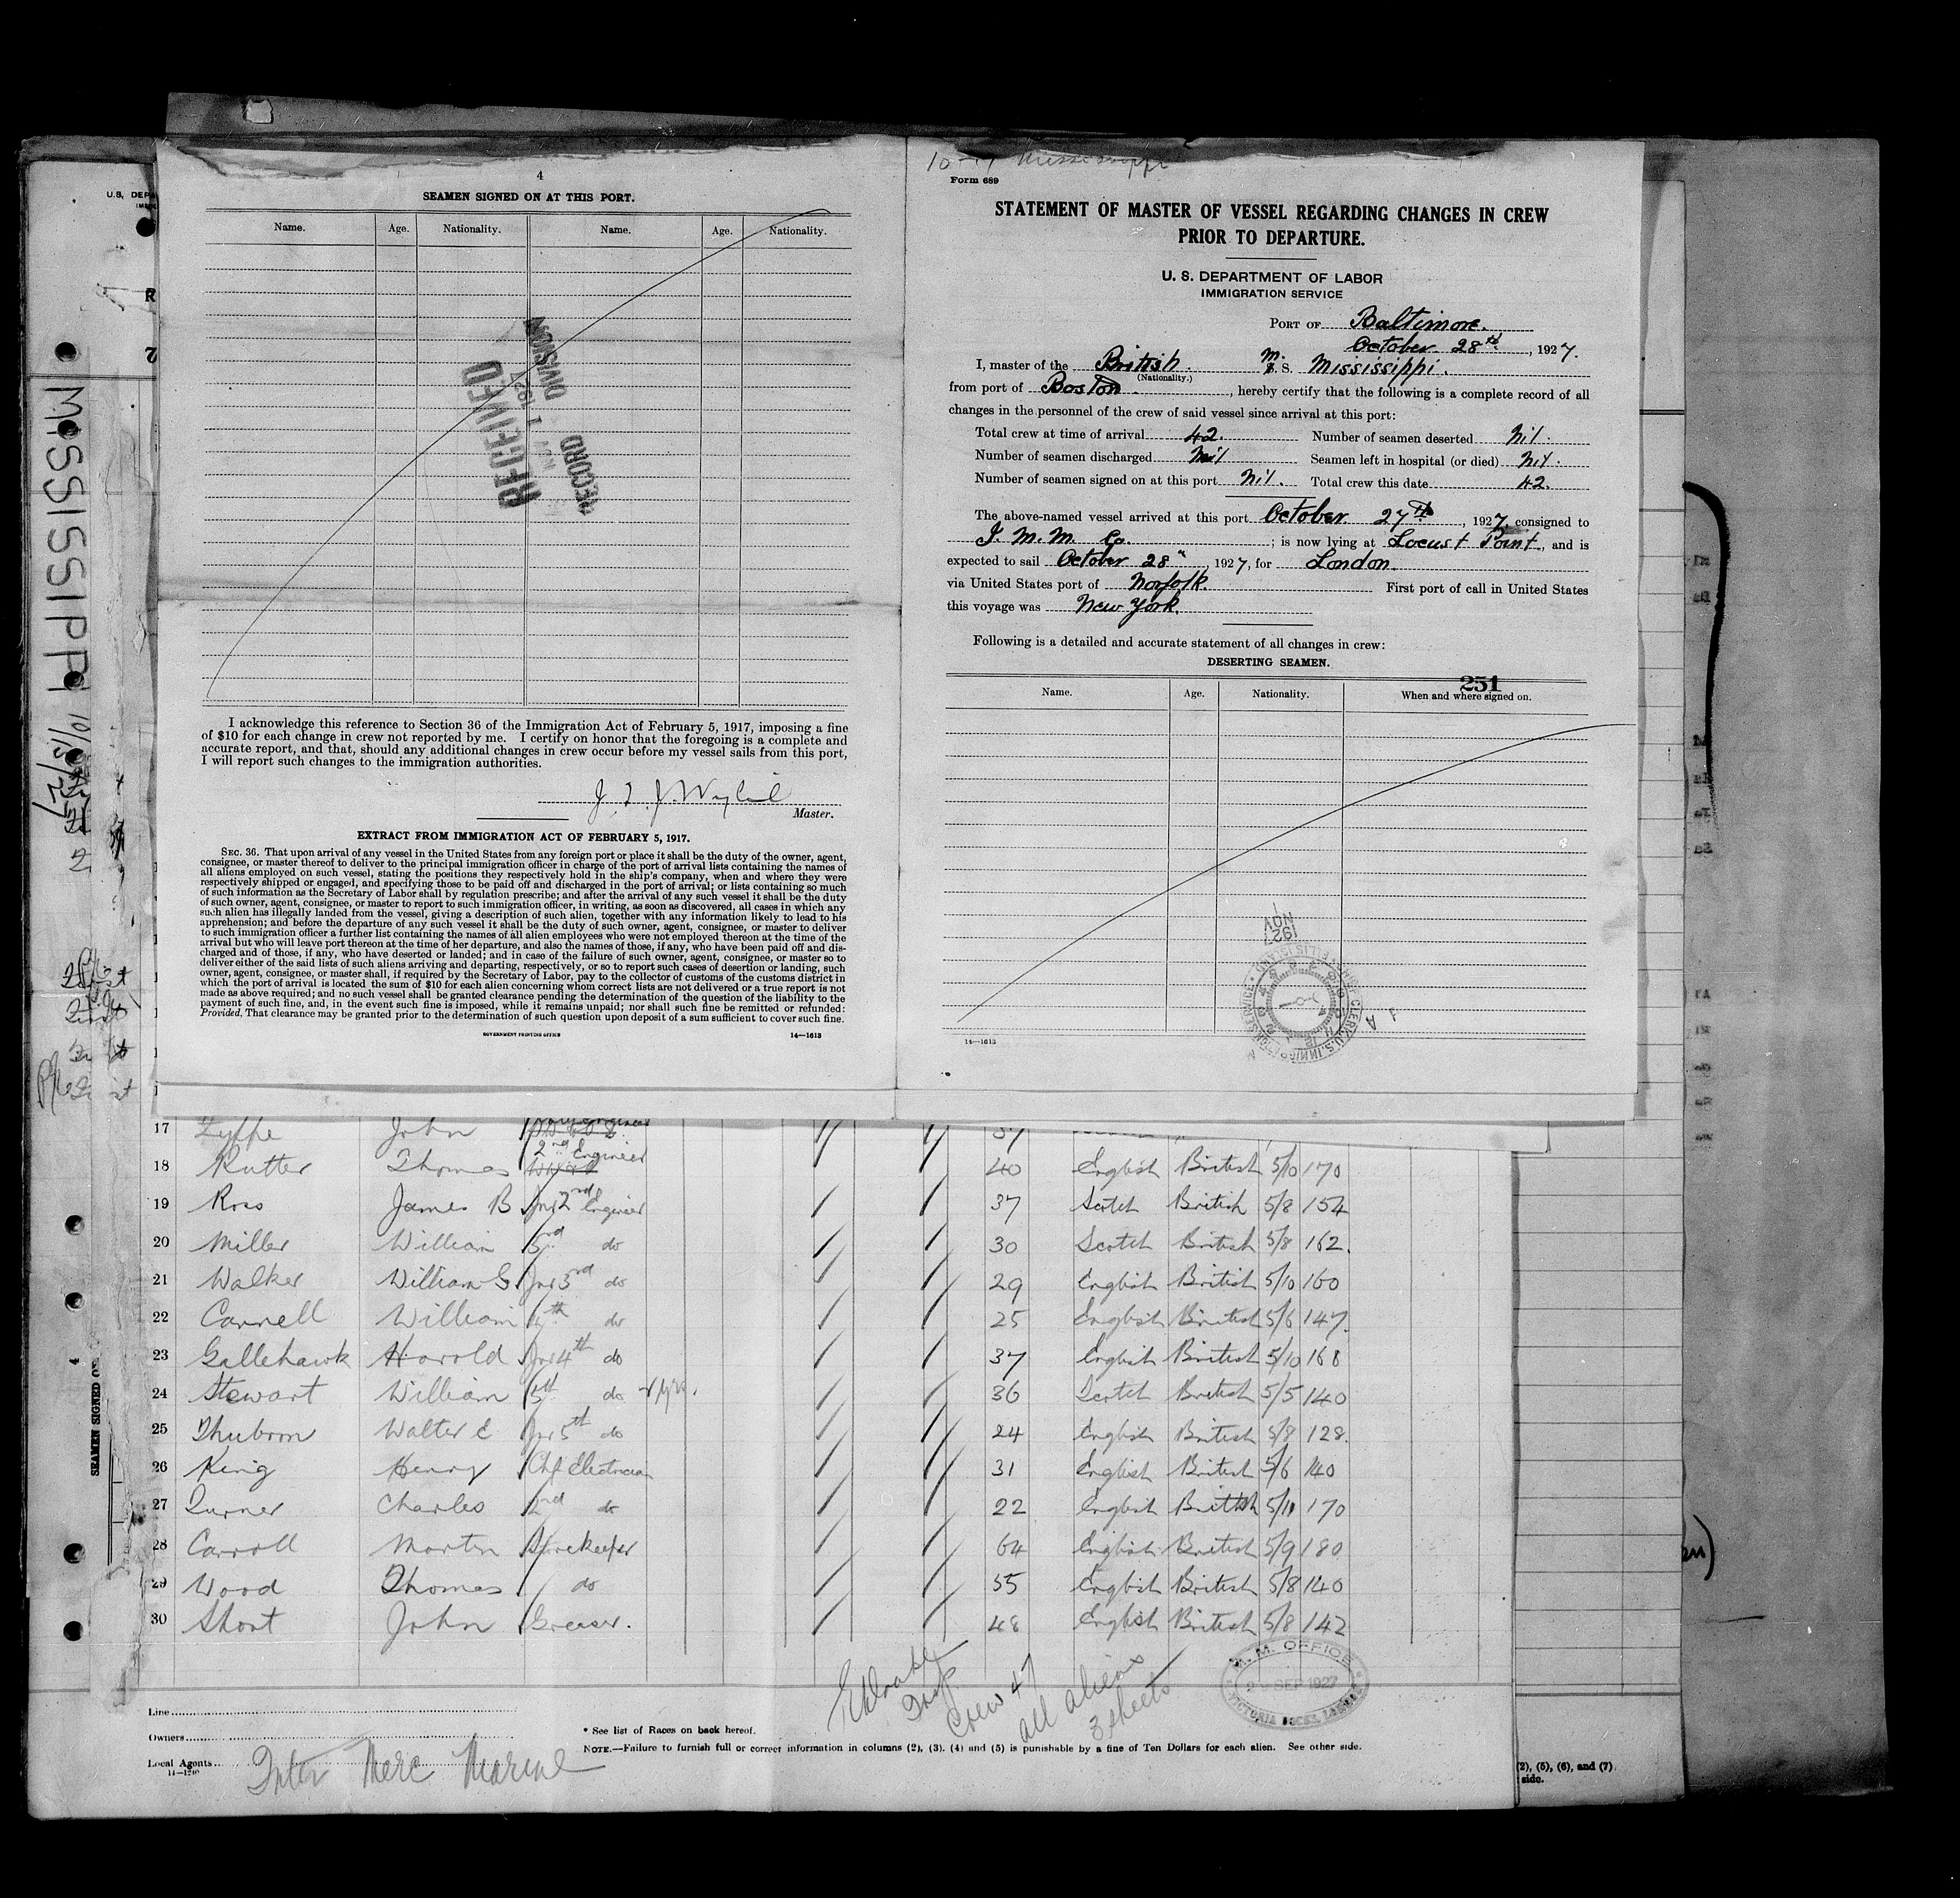 4
SEAMEN SIGNED ON AT THIS PORT.
Name. Age. Nationality. Name. Age. Nationality.
RECEIVED
NOV 1 1927
RECORD DIVISION
I acknowledge this reference to Section 36 of the Immigration Act of February 5, 1917, imposing a fine
of $10 for each change in crew not reported by me. I certify on honor that the foregoing is a complete and
accurate report, and that, should any additional changes in crew occur before my vessel sails from this port,
I will report such changes to the immigration authorities.
Master.
EXTRACT FROM IMMIGRATION ACT OF FEBRUARY 5, 1917.
SEC. 36. That upon arrival of any vessel in the United States from any foreign port or place it shall be the duty of the owner, agent,
consignee, or master thereof to deliver to the principal immigration officer in charge of the port of arrival lists containing the names of
all aliens employed on such vessel, stating the positions they respectively hold in the ship's company, when and where they were
respectively shipped or engaged, and specifying those to be paid off and discharged in the port of arrival; or lists containing so much
of such information as the Secretary of Labor shall by regulation prescribe; and after the arrival of any such vessel it shall be the duty
of such owner, agent, consignee, or master to report to such immigration officer, in writing, as soon as discovered, all cases in which any
such alien has illegally landed from the vessel, giving a description of such alien, together with any information likely to lead to his
apprehension; and before the departure of any such vessel it shall be the duty of such owner, agent, consignee, or master to deliver
to such immigration officer a further list containing the names of all alien employees who were not employed thereon at the time of the
arrival but who will leave port thereon at the time of her departure, and also the names of those, if any, who have been paid off and dis-
charged and of those, if any, who have deserted or landed; and in case of the failure of such owner, agent, consignee, or master so to
deliver either of the said lists of such aliens arriving and departing, respectively, or so to report such cases of desertion or landing, such
owner, agent, consignee, or master shall, if required by the Secretary of Labor, pay to the collector of customs of the customs district in
which the port of arrival is located the sum of $10 for each alien concerning whom correct lists are not delivered or a true report is not
made as above required; and no such vessel shall be granted clearance pending the determination of the question of the liability to the
payment of such fine, and, in the event such fine is imposed, while it remains unpaid; nor shall such fine be remitted or refunded:
Provided, That clearance may be granted prior to the determination of such question upon deposit of a sum sufficient to cover such fine.
GOVERNMENT PRINTING OFFICE 14—1613
Mississippi
Form 689
STATEMENT OF MASTER OF VESSEL REGARDING CHANGES IN CREW
PRIOR TO DEPARTURE.
U. S. DEPARTMENT OF LABOR
IMMIGRATION SERVICE
PORT OF Baltimore.
October 28th, 1927.
I, master of the British M. S. Mississippi.
(Nationality.)
from port of Boston, hereby certify that the following is a complete record of all
changes in the personnel of the crew of said vessel since arrival at this port:
Total crew at time of arrival 42. Number of seamen deserted Nil.
Number of seamen discharged Nil Seamen left in hospital (or died) Nil.
Number of seamen signed on at this port Nil. Total crew this date 42.
The above-named vessel arrived at this port October 27th, 1927, consigned to
I. M. M. Co; is now lying at Locust Point, and is
expected to sail October 28", 1927, for London.
via United States port of Norfolk. First port of call in United States
this voyage was New York.
Following is a detailed and accurate statement of all changes in crew:
DESERTING SEAMEN.
251
Name. Age. Nationality. When and where signed on.
NOV 1 1927
14—1613
MISSISSIPPI 10/5/27
SEAMEN SIGNED ON
17 John 37
18 Rutter Thomas 2nd Engineer 40 English British 5/10 170
19 Ross James B Jnr 2nd Engineer 37 Scotch British 5/8 154
20 Miller William 3rd do 30 Scotch British 5/8 162.
21 Walker William G Jnr 3rd do 29 English British 5/10 160
22 Cannell William 4th do 25 English British 5/6 147.
23 Gallehawk Harold Jnr 4th do 37 English British 5/10 168
24 Stewart William 5th do 36 Scotch British 5/5 140
25 Thubron Walter E Jnr 5th do 24 English British 5/8 128.
26 King Henry Chf Electrician 31 English British 5/6 140
27 Turner Charles 2nd do 22 English British 5/11 170
28 Carroll Martin Storekeeper 64 English British 5/9 180
29 Wood Thomas do 55 English British 5/8 140
30 Short John Greaser. 48 English British 5/8 142
Insp.
Crew 47
all aliens
3 sheets
I. M. M. OFFICE
SEP 1927
VICTORIA DOCKS, LONDON
Line
Owners
Local Agents Inter Merc Marine
* See list of Races on back hereof.
NOTE.—Failure to furnish full or correct information in columns (2), (3), (4) and (5) is punishable by a fine of Ten Dollars for each alien. See other side.
(2), (5), (6), and (7)
side.